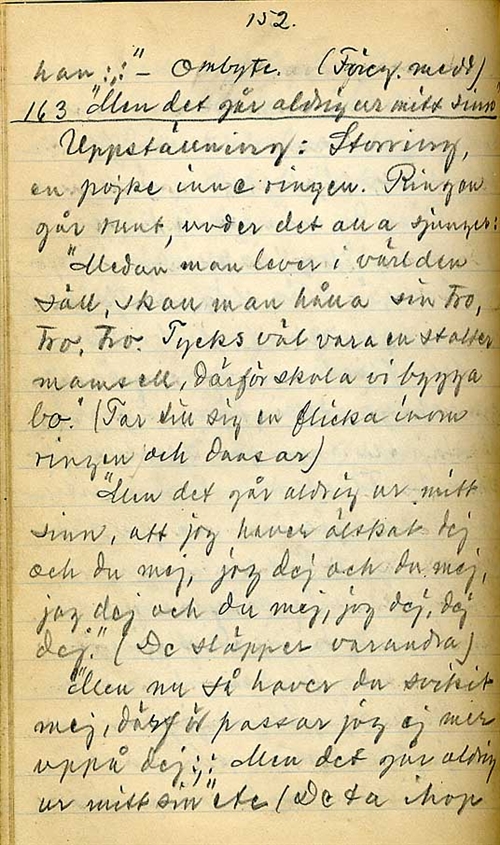 152.
han :,:" – Ombyte. (Föreg. medd)
163 "Men det går aldrig ur mitt sinn"
Uppställning: Storring,
en pojke inne i ringen. Ringen
går runt, under det alla sjunger:
"Medan man lever i världen
säll, skall man hålla sin tro,
tro, tro. Tycks väl vara en stolter
mamsell, därför skola vi bygga
bo." (Tar till sig en flicka inom
ringen och dansar)
"Men det går aldrig ur mitt
sinn, att jag haver älskat dej
och du mej, jag dej och du mej,
jag dej och du mej, jag dej, dej
dej." (De släpper varandra)
"Men nu så haver du svikit
mej, därför passar jag ej mer
uppå dej:,: Men det går aldrig
ur mitt sin" etc (De ta ihop